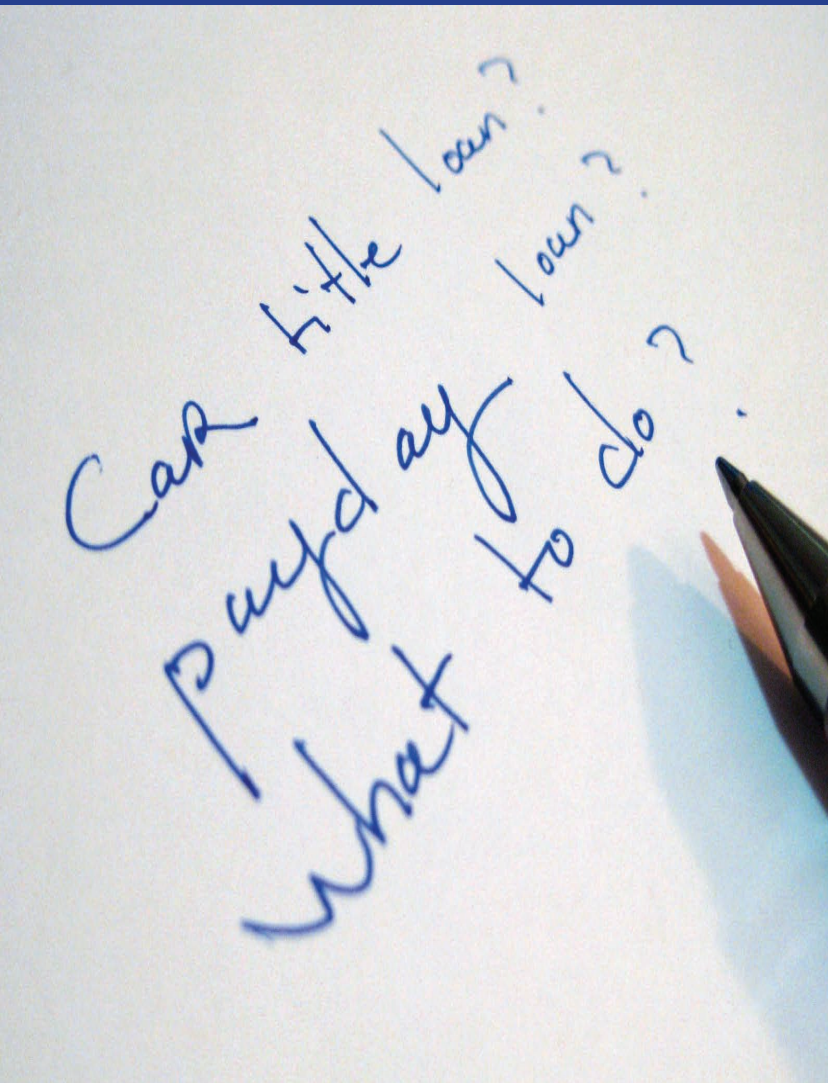 Car title loan?
payday loan?
what to do?